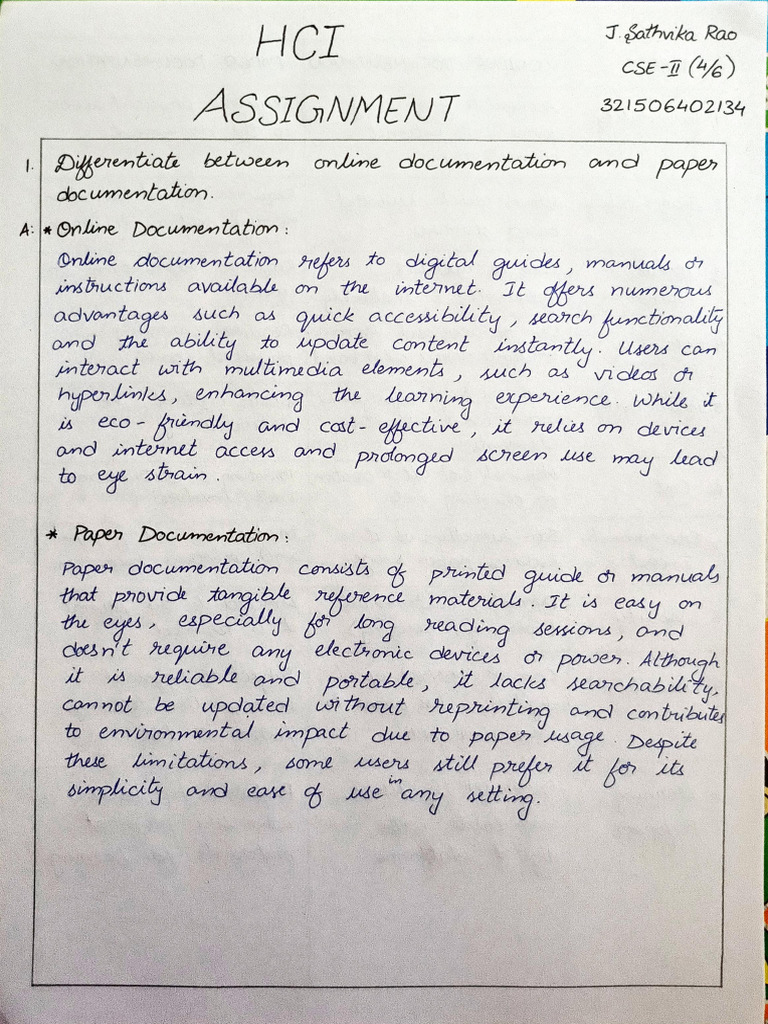 HCI
ASSIGNMENT
J. Sathvika Rao
CSE-II (4/6)
321506402134
1. Differentiate between online documentation and paper
documentation.
A: * Online Documentation:
Online documentation refers to digital guides, manuals or
instructions available on the internet. It offers numerous
advantages such as quick accessibility, search functionality
and the ability to update content instantly. Users can
interact with multimedia elements, such as videos or
hyperlinks, enhancing the learning experience. While it
is eco-friendly and cost-effective, it relies on devices
and internet access and prolonged screen use may lead
to eye strain.
* Paper Documentation:
Paper documentation consists of printed guide or manuals
that provide tangible reference materials. It is easy on
the eyes, especially for long reading sessions, and
doesn't require any electronic devices or power. Although
it is reliable and portable, it lacks searchability,
cannot be updated without reprinting and contributes
to environmental impact due to paper usage. Despite
these limitations, some users still prefer it for its
simplicity and ease of use in any setting.